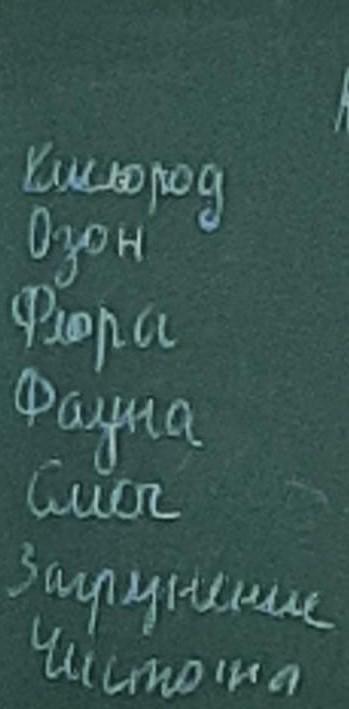 Кислород
Озон
Флора
Фауна
Смог
Загрязнение
Чистота